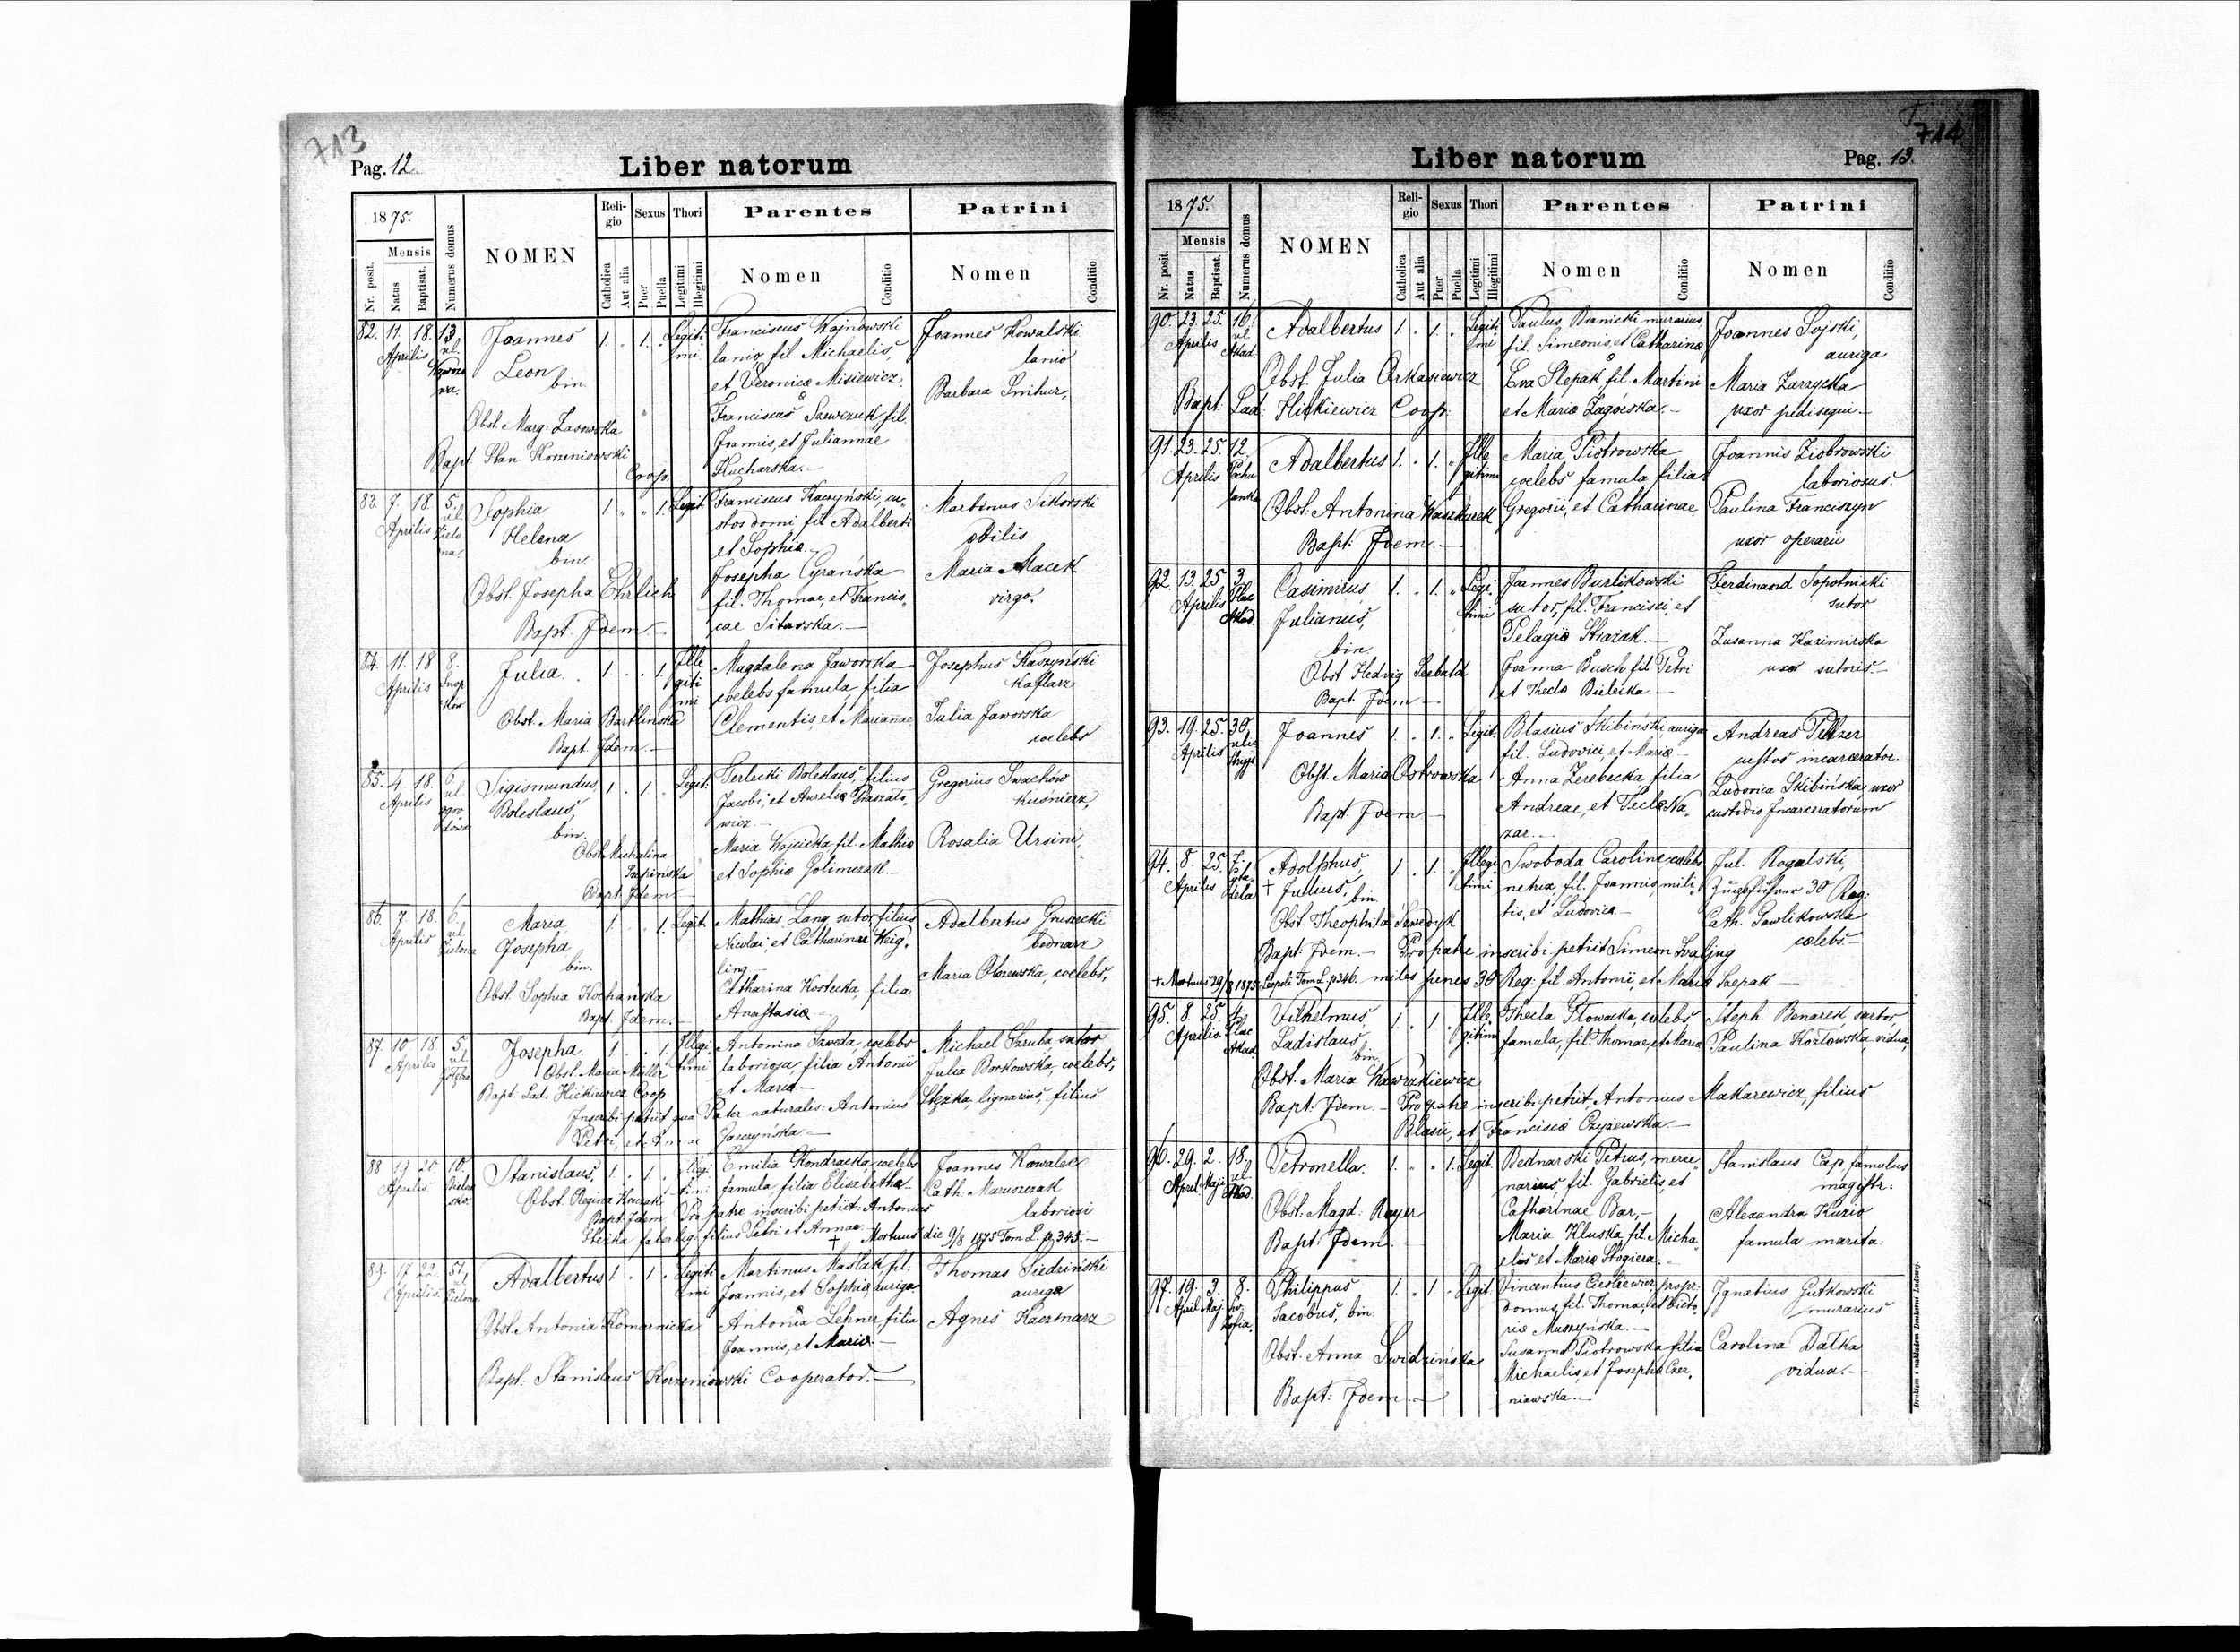 713
Pag. 12.
Liber natorum
1875.
Nr. posit.
Mensis
Natus
Baptisat.
Numerus domus
NOMEN
Religio
Catholica
Aut alia
Sexus
Puer
Puella
Thori
Legitimi
Illegitimi
Parentes
Nomen
Conditio
Patrini
Nomen
Conditio
82. 11. 18. 13
Aprilis
ul.
Joannes
Leon
bin.
1. 1. Legiti
mi.
Obst. Marg: Zasowska
Bapt Stan Korzeniowski
Coop.
Franciscus Wajnowski
lanio, fil. Michaelis,
et Veronicæ Misiewicz,
Francisca Szewczuk fil.
Joannis, et Juliannae
Kucharska.-
Joannes Kowalski
lanio
Barbara Smihur,
83. 7. 18. 5.
Aprilis
ul
Zielo
na.
Sophia
Helena
bin.
1 1. Legit.
Obst. Josepha Ehrlich
Bapt. Idem.-
Franciscus Kaczyński, cu„
stos domi fil Adalberti
et Sophiæ.-
Josepha Cyrańska
fil. Thomae, et Francis„
cae Sitarska.-
Martinus Sikorski
Maria Macek
virgo.
84. 11. 18 8.
Aprilis
Snop
ków
Julia.
1 1 Ille
giti
mi
Obst. Maria Bartlińska
Bapt. Idem.-
Magdalena Jaworska
coelebs famula, filia
Clementis, et Mariannae
Josephus Kaszyński
Kaflarz
Julia Jaworska
coelebs
85. 4 18. 6
Aprilis
ul
ogro
dowa
Sigismundus
Boleslaus,
bin.
1 1 Legit.
Obst. Michalina
Bapt. Idem
Terlecki Boleslaus, filius
Jacobi, et Aureliæ
wicz.-
Maria Wojcicka fil. Mathiæ
et Sophiæ Golimczak.-
Gregorius Swachów
Kuśnierz,
Rosalia Ursini,
86. 7 18. 6.
Aprilis
ul
Zielona
Maria
Josepha
bin.
1. 1. Legit.
Obst. Sophia Kochańska
Bapt. Idem.-
Mathias Lang, sutor, filius
Nicolai, et Catharinae Weig„
ling.-
Catharina Kostecka, filia
Anastasiæ
Adalbertus Gruszecki
bednarz
Maria Olszewska, coelebs,
87. 10 18 5.
Aprilis
ul
Josepha.
1 1 Illegi
timi
Obst. Maria Müller
Bapt. Lad. Hickiewicz Coop
Antonina Szweda, coelebs
laboriosa, filia Antonii
et Mariæ.-
Michael Skruba sutor
Julia Borkowska, coelebs,
Inscribi petiit qua Pater naturalis: Antonius Stęzka, lignarius, filius
Petri, et Garczyńska.-
88 19 20. 10.
Aprilis.
Stanislaus,
1. 1 Illegi
timi
Obst. Regina
Bapt. Idem
Emilia Kondracka, coelebs
famula, filia Elisabethæ.
Pro patre inscribi petiit: Antonius
Stezka faber lig. filius Petri et Annae
† Mortuus die 9/8 1875 Tom L. p. 345.-
Joannes Kowalec
Cath. Maruszczak
laboriosi
89. 17 22. 51.
Aprilis
ul
Zielona
Adalbertus
1 1 Legiti
mi
Obst. Antonia Komarnicka
Bapt. Stanislaus Korzeniowski Cooperator.-
Martinus Maślak fil.
Joannis, et Sophiæ, auriga.
Antonia Lehner, filia
Joannis, et Mariæ
Thomas Siedziński
auriga
Agnes Kaczmarz
714
Liber natorum
Pag. 13.
1875.
Nr. posit.
Mensis
Natus
Baptisat.
Numerus domus
NOMEN
Religio
Catholica
Aut alia
Sexus
Puer
Puella
Thori
Legitimi
Illegitimi
Parentes
Nomen
Conditio
Patrini
Nomen
Conditio
90. 23. 25. 16.
Aprilis
ul
Akad.
Adalbertus
1. 1. Legiti
mi
Obst. Julia Arkasiewicz
Bapt. Lad: Hickiewicz Coop:
Paulus Branicki murarius,
fil. Simeonis, et Catharinæ
Eva Slepak fil. Martini
et Mariæ Zagórska.-
Joannes Sojski,
auriga
Maria Zarzycka
uxor pedisequi.-
91. 23. 25. 12.
Aprilis
Adalbertus
1. 1. Ille
gitimi
Obst. Antonina Kaszkurek
Bapt. Idem.-
Maria Piotrowska
coelebs famula filia
Gregorii, et Catharinae
Joannis Ziobrowski
laboriosus.
Paulina Franciszyn
uxor operarii
92. 13. 25. 3.
Aprilis
Plac
Akad.
Casimirus
Julianus,
bin.
1. 1. Legi
timi
Obst Hedvig Seebald
Bapt. Idem.-
Joannes Burlikowski
sutor, fil. Francisci, et
Pelagiæ Strazak.-
Joanna Busch fil Petri
et Theclæ Bielecka.-
Ferdinand Sopotnicki
sutor
Zusanna Kazimirska
uxor sutoris.-
93. 19. 25. 30.
Aprilis
Joannes
1. 1. Legit.
Obst. Maria Ostrowska
Bapt. Idem.-
Blasius Skibiński auriga
fil. Ludovici, et Mariæ.-
Anna Zerebecka filia
Andreae, et Teclæ Na„
zar.-
Andreas Peltzer
custos incarcerator.
Ludovica Skibińska, uxor
custodis Incarceratorum
94. 8. 25. 7.
Aprilis
Cyta
dela
Adolphus,
† Julius, bin.
1. 1. Illegi
timi
Obst Theophila Szwedyk
Bapt. Idem.-
Swoboda Carolina coelebs
netrix, fil. Joannis, mili„
tis, et Ludovicæ.-
Jul. Rogalski,
Zugsführer 30 Reg:
Cath. Pawlikowska
coelebs.-
Pro patre inscribi petiit Simeon Svaljug
miles penes 30 Reg: fil Antonii, et Mariæ Szepak.-
† Mortuus 29/8 1875 Leopoli Tom L. p 346.
95. 8. 25. 4.
Aprilis.
Plac
Akad
Vilhelmus
Ladislaus
bin.
1. 1. Ille
gitimi
Obst. Maria Wawrzkiewicz
Bapt. Idem.-
Thecla Głowacka, coelebs
famula, fil. Thomae, et Mariæ
Steph Benarek, sartor
Paulina Kozłowska, vidua,
Pro patre inscribi petiit Antonius Makarewicz, filius
Blasii, et Franciscæ Czyżewska.-
96. 29. 2. 18.
April. Maji
ul
Akad.
Petronella.
1. 1. Legit.
Obst. Magd: Rayer
Bapt. Idem.
Bednarski Petrus, merce„
narius fil. Gabrielis, et
Catharinae Bar,-
Maria Kluska, fil. Micha„
elis et Mariæ Stogiera.-
Stanislaus Cap, famulus
magistr.
Alexandra Kuzio
famula marita.
97. 19. 3. 8.
April. Maj.
Św.
Zofia.
Philippus
Jacobus, bin.
1. 1 Legit.
Obst. Anna Swidzińska
Bapt: Idem.-
Vincentius Cieśliewicz, propr.
domus, fil. Thomae, et Victo„
riæ Muszyńska.-
Susanna Piotrowska filia
Michaelis, et Josephæ Czer„
niawska.-
Ignatius Gutkowski
murarius
Carolina Datka
vidua.-
Drukiem i nakładem Drukarni Ludowej.